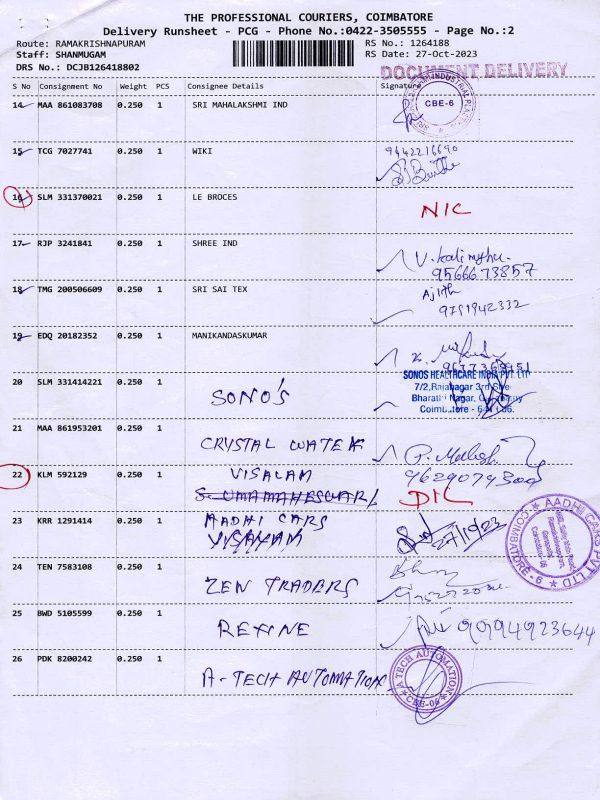 THE PROFESSIONAL COURIERS, COIMBATORE
Delivery Runsheet - PCG - Phone No.:0422-3505555 - Page No.:2
Route: RAMAKRISHNAPURAM RS No.: 1264188
Staff: SHANMUGAM RS Date: 27-Oct-2023
DRS No.: DCJB126418802 DOCUMENT DELIVERY
S No Consignment No Weight PCS Consignee Details Signature
14 MAA 861083708 0.250 1 SRI MAHALAKSHMI IND
CBE-6
15 TCG 7027741 0.250 1 WIKI 9442216690
16 SLM 331370021 0.250 1 LE BROCES
NIC
17 RJP 3241841 0.250 1 SHREE IND
9566673857
18 TMG 200506609 0.250 1 SRI SAI TEX Ajith
9791942332
19 EDQ 20182352 0.250 1 MANIKANDASKUMAR
SONOS HEALTHCARE INDIA PVT. LTD
20 SLM 331414221 0.250 1 SONO'S
7/2, Rajanagar 3rd
Bharathi Nagar,
Coimbatore
21 MAA 861953201 0.250 1
CRYSTAL WATER
22 KLM 592129 0.250 1 VISALAM
S. UMAMAHESWARI DIL
23 KRR 1291414 0.250 1 AADHI CARS
VISALAM 27/10/23
AADHI CARS PVT LTD
COIMBATORE - 6
24 TEN 7583108 0.250 1
ZEN TRADERS
25 BWD 5105599 0.250 1 REXINE 9994923644
26 PDK 8200242 0.250 1
A-TECH AUTOMATION
A TECH AUTOMATION
CBE-06